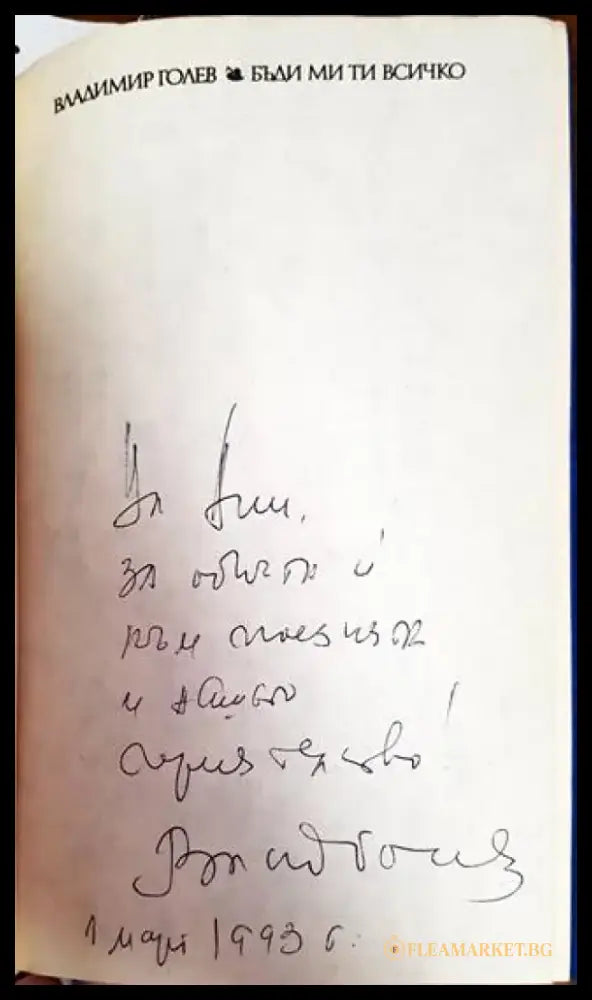 ВЛАДИМИР ГОЛЕВ БЪДИ МИ ТИ ВСИЧКО
На Ани,
за обичта ѝ
към поезията
и нашето
приятелство!
Влад Голев
1 март 1993 г.
FLEAMARKET.BG